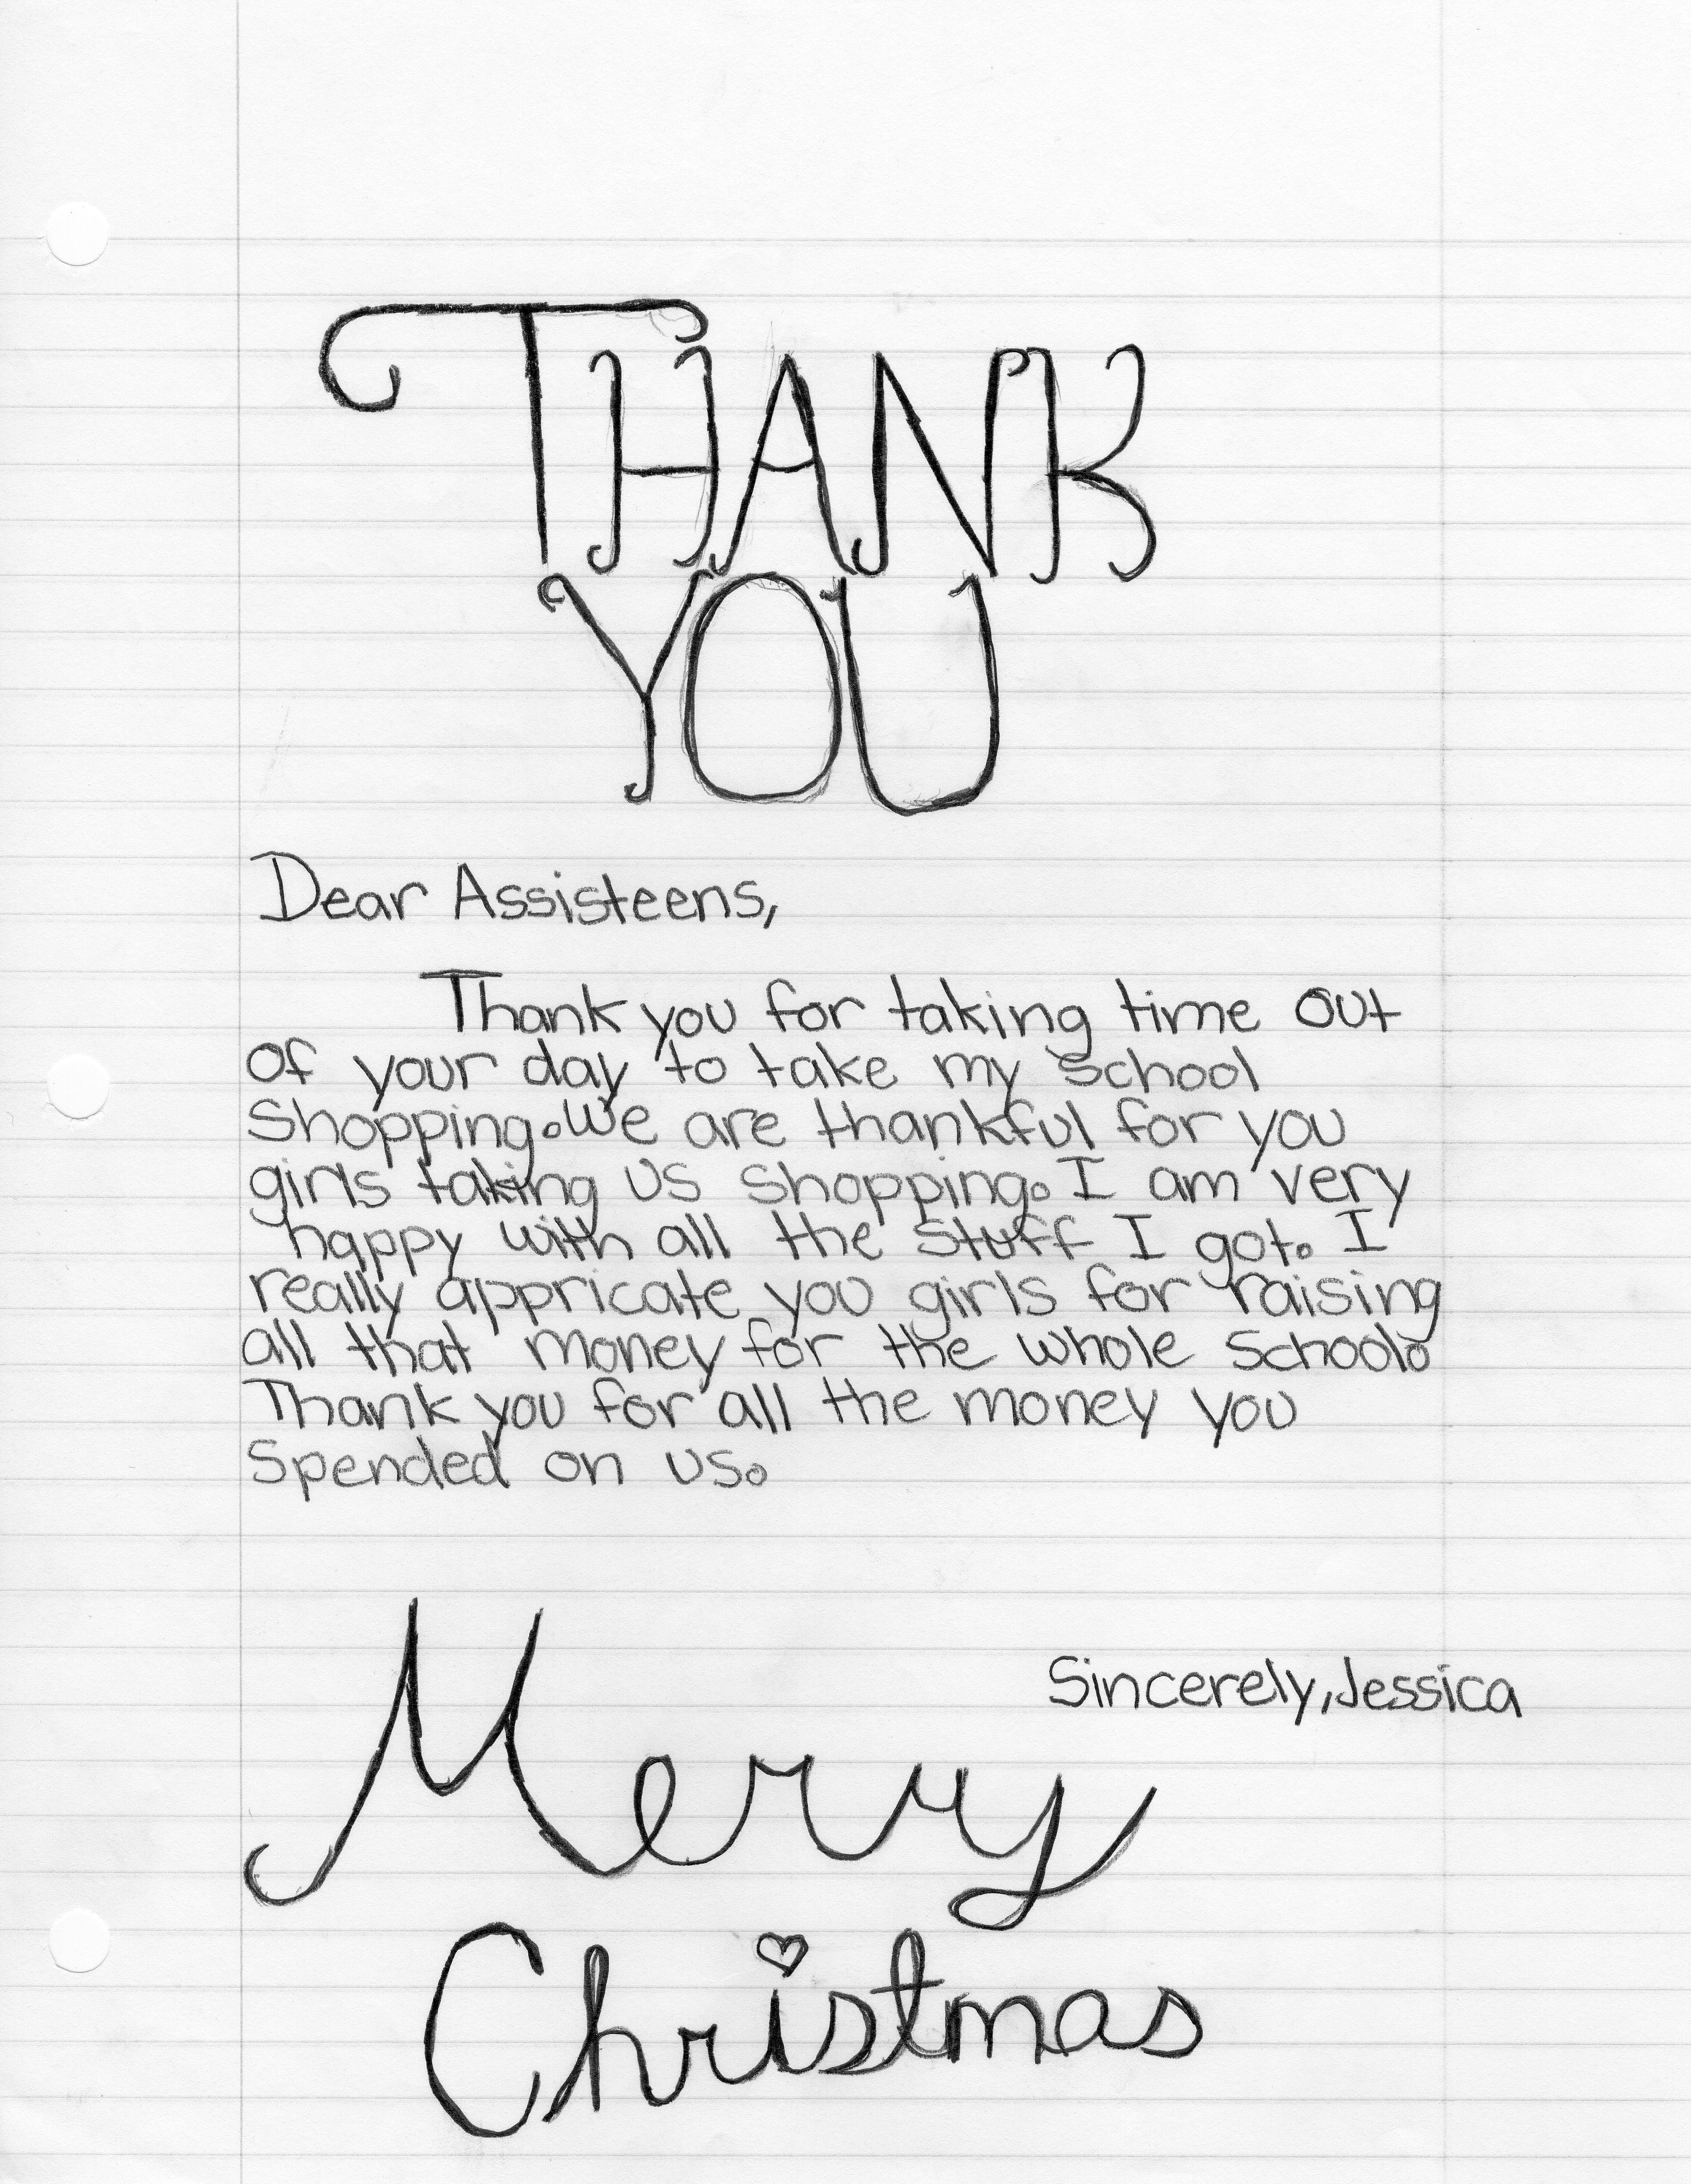 THANK
YOU
Dear Assisteens,
Thank you for taking time out
of your day to take my school
Shopping. We are thankful for you
girls taking us shopping. I am very
happy with all the stuff I got. I
really appricate you girls for raising
all that money for the whole school.
Thank you for all the money you
Spended on us.
Sincerely, Jessica
Merry
Christmas